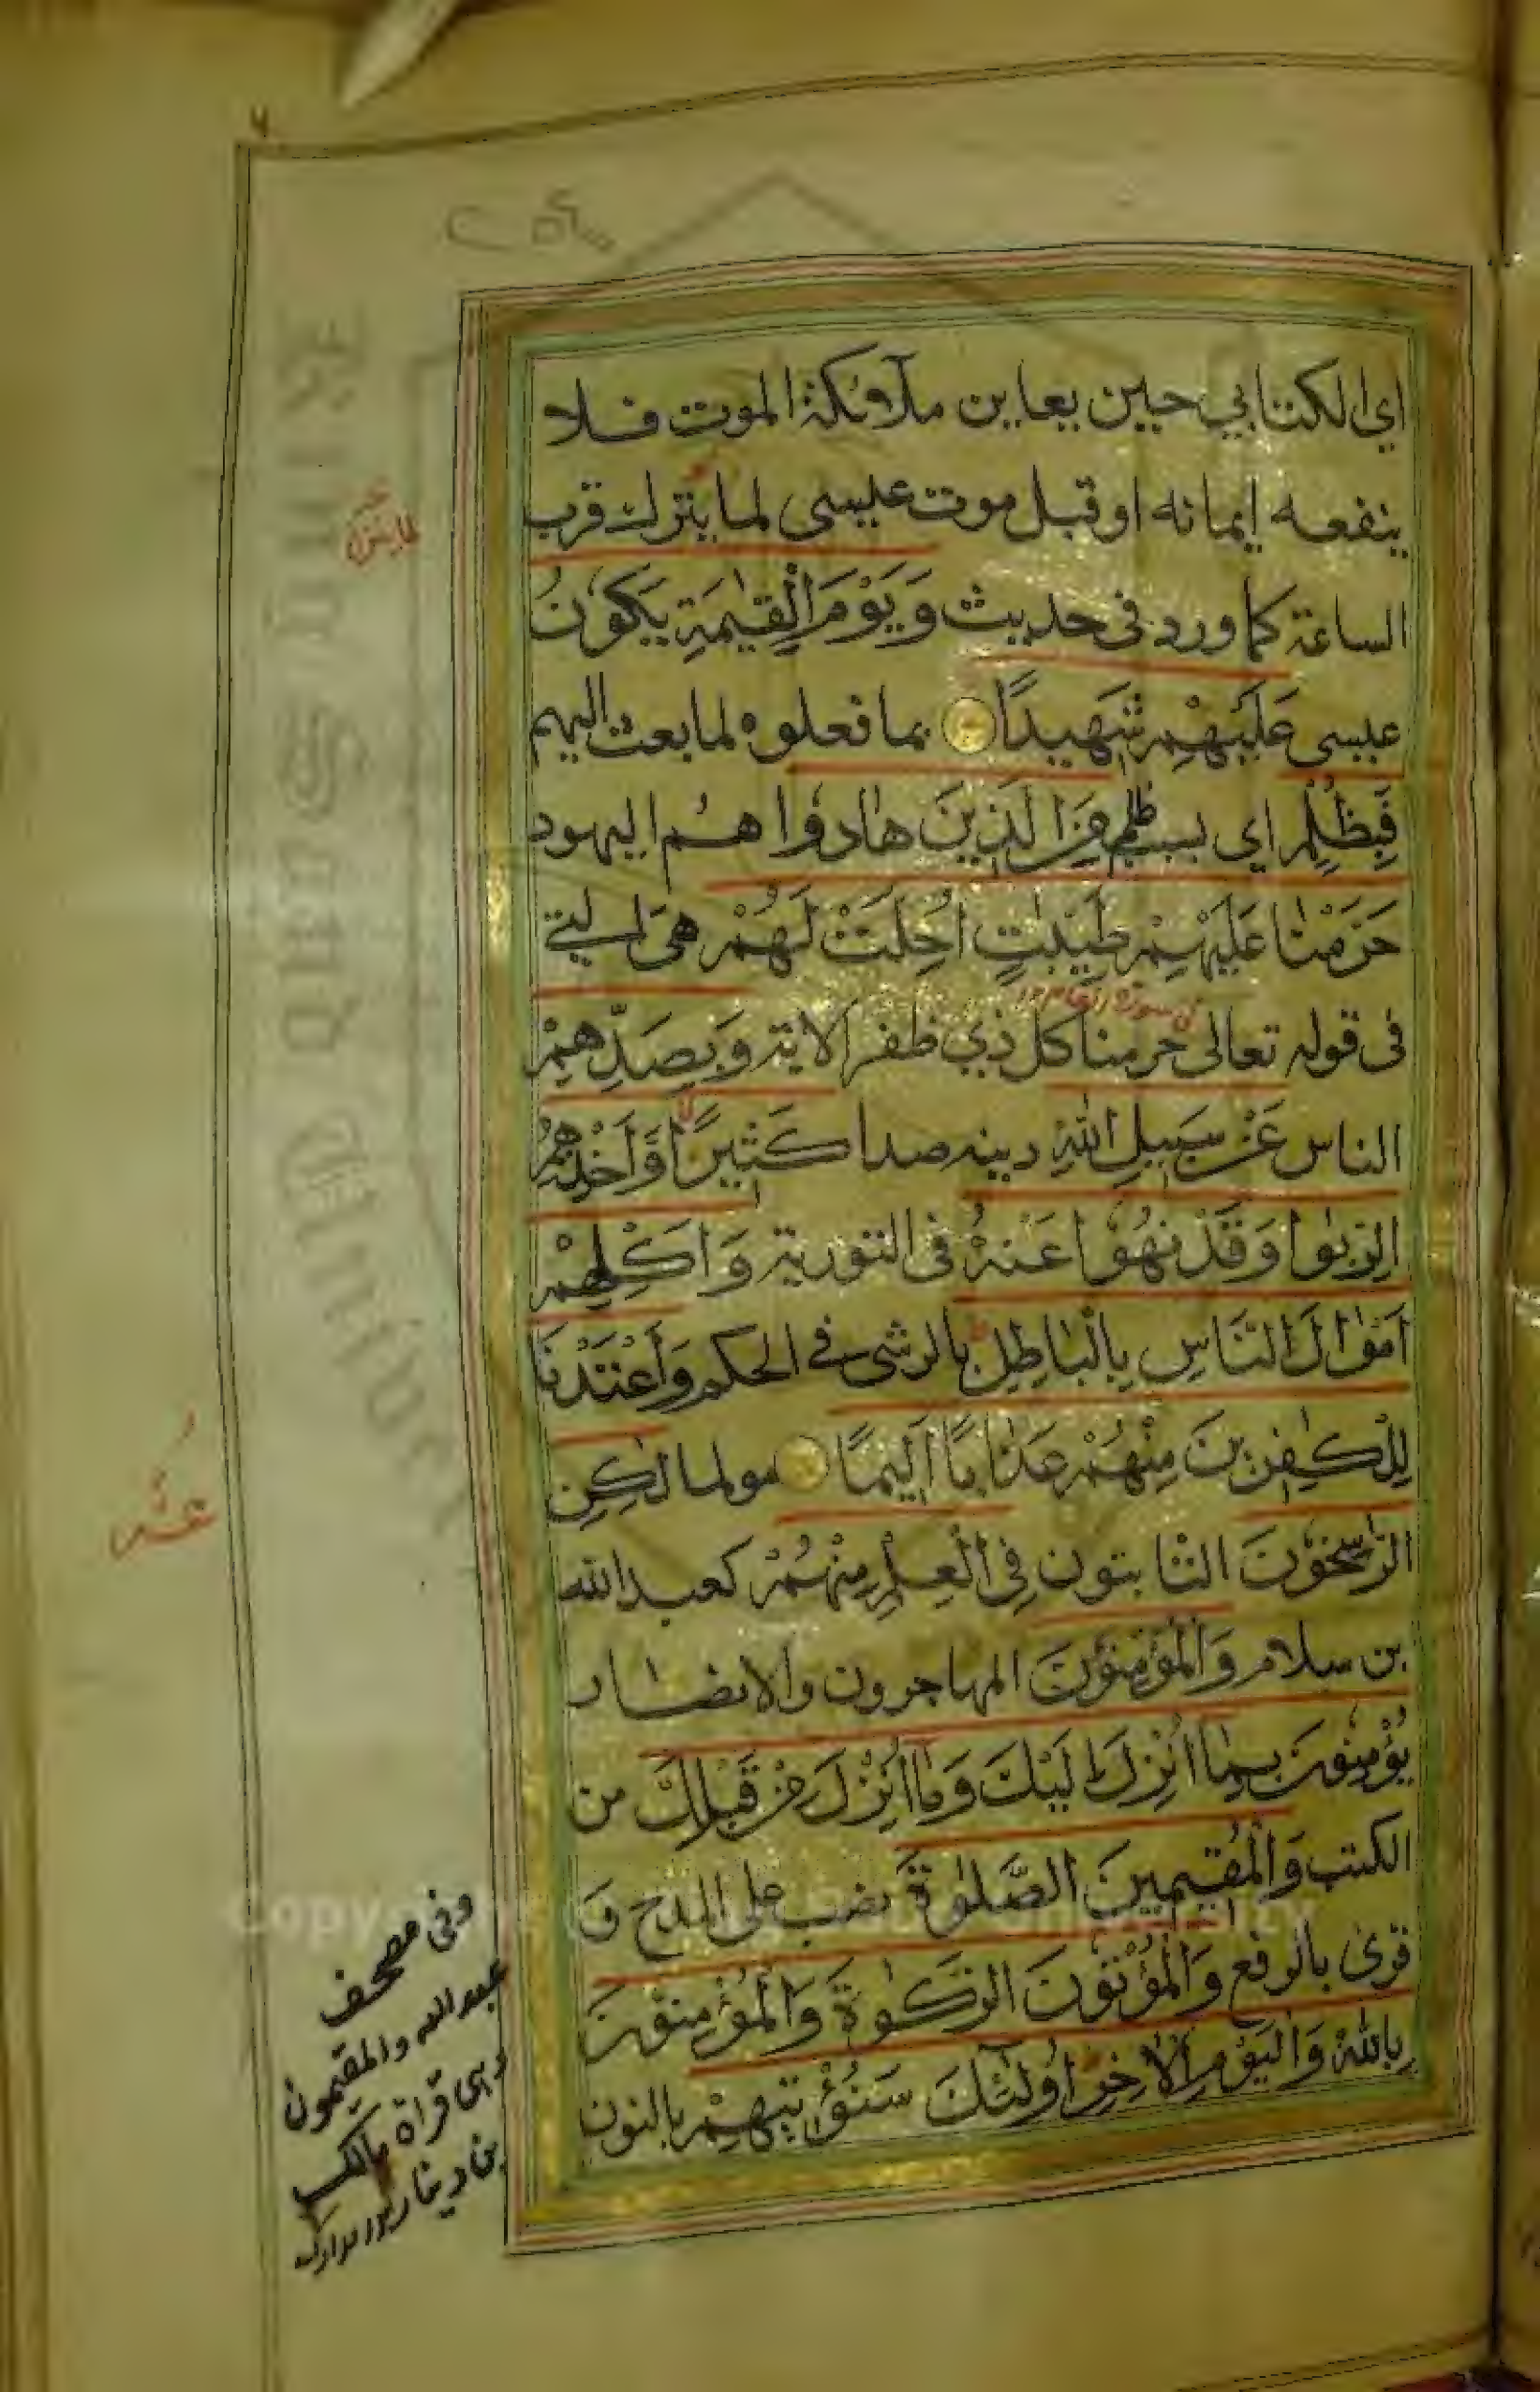 اي الكتابي حين يعاين ملائكة الموت فلا
ينفعه إيمانه او قبل موت عيسى لما ينزل قرب
الساعة كما ورد في حديث وَيَوْمَ الْقِيٰمَةِ يَكُوْنُ
عيسى عَلَيْهِمْ شَهِيدًا بما فعلوه لما بعث اليهم
فَبِظُلْمٍ اي بسبب ظلم مِنَ الَّذِيْنَ هَادُوْا هم اليهود
حَرَّمْنَا عَلَيْهِمْ طَيِّبٰتٍ اُحِلَّتْ لَهُمْ هي التي
في سورة انعام ١٢
في قوله تعالى حرمنا كل ذي ظفر الاية وَبِصَدِّهِمْ
الناس عَنْ سَبِيلِ اللّٰهِ دينه صدا كَثِيْرًا وَّاَخْذِهِمُ
الرِّبٰوا وَقَدْ نُهُوْا عَنْهُ في التورية وَاَكْلِهِمْ
اَمْوَالَ النَّاسِ بِالْبَاطِلِ بالرشى في الحكم وَاَعْتَدْنَا
لِلْكٰفِرِيْنَ مِنْهُمْ عَذَابًا اَلِيْمًا مولما لٰكِنِ
الرّٰسِخُوْنَ الثابتون فِي الْعِلْمِ مِنْهُمْ كعبد الله
بن سلام وَالْمُؤْمِنُوْنَ المهاجرون والانصار
يُؤْمِنُوْنَ بِمَا اُنْزِلَ اِلَيْكَ وَمَا اُنْزِلَ مِنْ قَبْلِكَ من
الكتب وَالْمُقِيْمِيْنَ الصَّلٰوةَ نصب على المدح و
قرئ بالرفع وَالْمُؤْتُوْنَ الزَّكٰوةَ وَالْمُؤْمِنُوْنَ
بِاللّٰهِ وَالْيَوْمِ الْاٰخِرِ اُولٰٓئِكَ سَنُؤْتِيْهِمْ بالنون
وفي مصحف
عبد الله والمقيمون
وهي قراة مالك
بن دينار مدارك